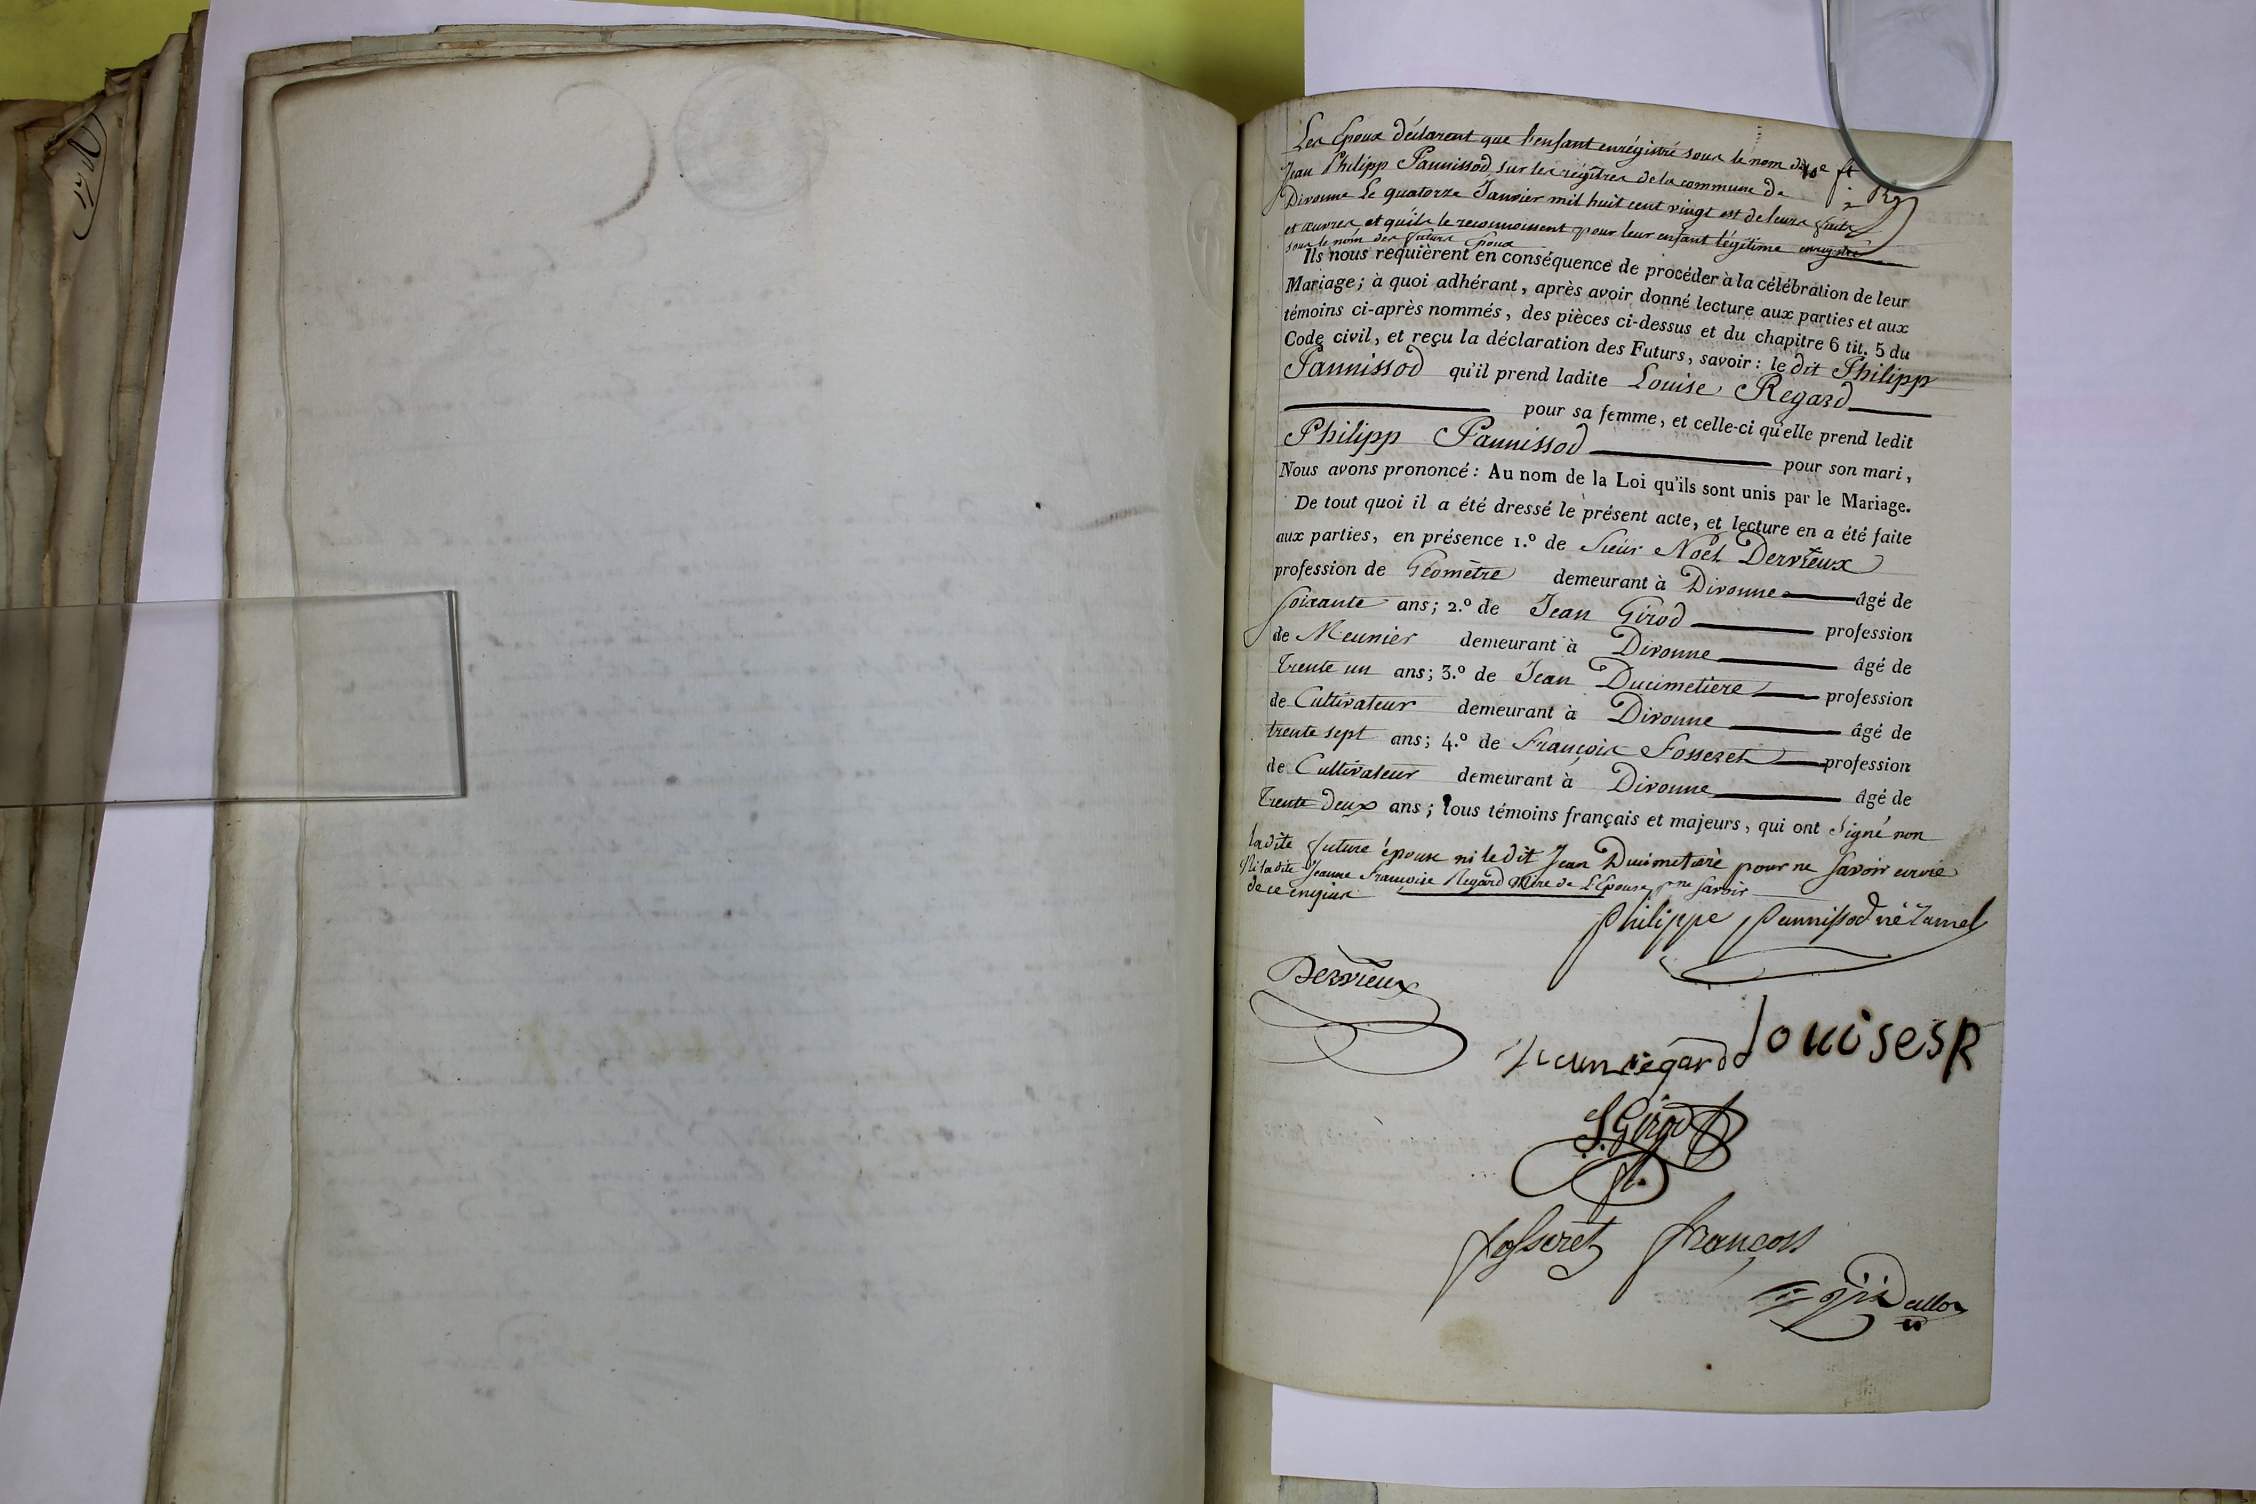 Les Epoux déclarent que l'enfant enrégistré sous le nom de
Jean Philipp Pannissod sur les régitres de la commune de
Divonne Le quatorze Janvier mil huit cent vingt est de leurs faits
et œuvres, et qu'ils le reconnoissent pour leur enfant légitime enregistré
sous le nom des futurs Epoux
Ils nous requièrent en conséquence de procéder à la célébration de leur
Mariage; à quoi adhérant, après avoir donné lecture aux parties et aux
témoins ci-après nommés, des pièces ci-dessus et du chapitre 6 tit. 5 du
Code civil, et reçu la déclaration des Futurs, savoir: le dit Philipp
Pannissod qu'il prend ladite Louise Regard
pour sa femme, et celle-ci qu'elle prend ledit
Philipp Pannissod pour son mari,
Nous avons prononcé: Au nom de la Loi qu'ils sont unis par le Mariage.
De tout quoi il a été dressé le présent acte, et lecture en a été faite
aux parties, en présence 1.º de Sieur Noël Dervieux
profession de Géomètre demeurant à Divonne âgé de
soixante ans; 2.º de Jean Girod profession
de Meunier demeurant à Divonne âgé de
trente un ans; 3.º de Jean Ducimetiere profession
de Cultivateur demeurant à Divonne âgé de
trente sept ans; 4.º de François Fosseret profession
de Cultivateur demeurant à Divonne âgé de
Trente deux ans; tous témoins français et majeurs, qui ont signé non
ladite future épouse ni le dit Jean Ducimetière pour ne savoir
Ni ladite Jeanne Françoise Regard Mère de L'Epouse pr ne savoir
de ce enquis
Philippe Pannissod né
Dervieux
louises R
regard
J. Girod
fosseret françois